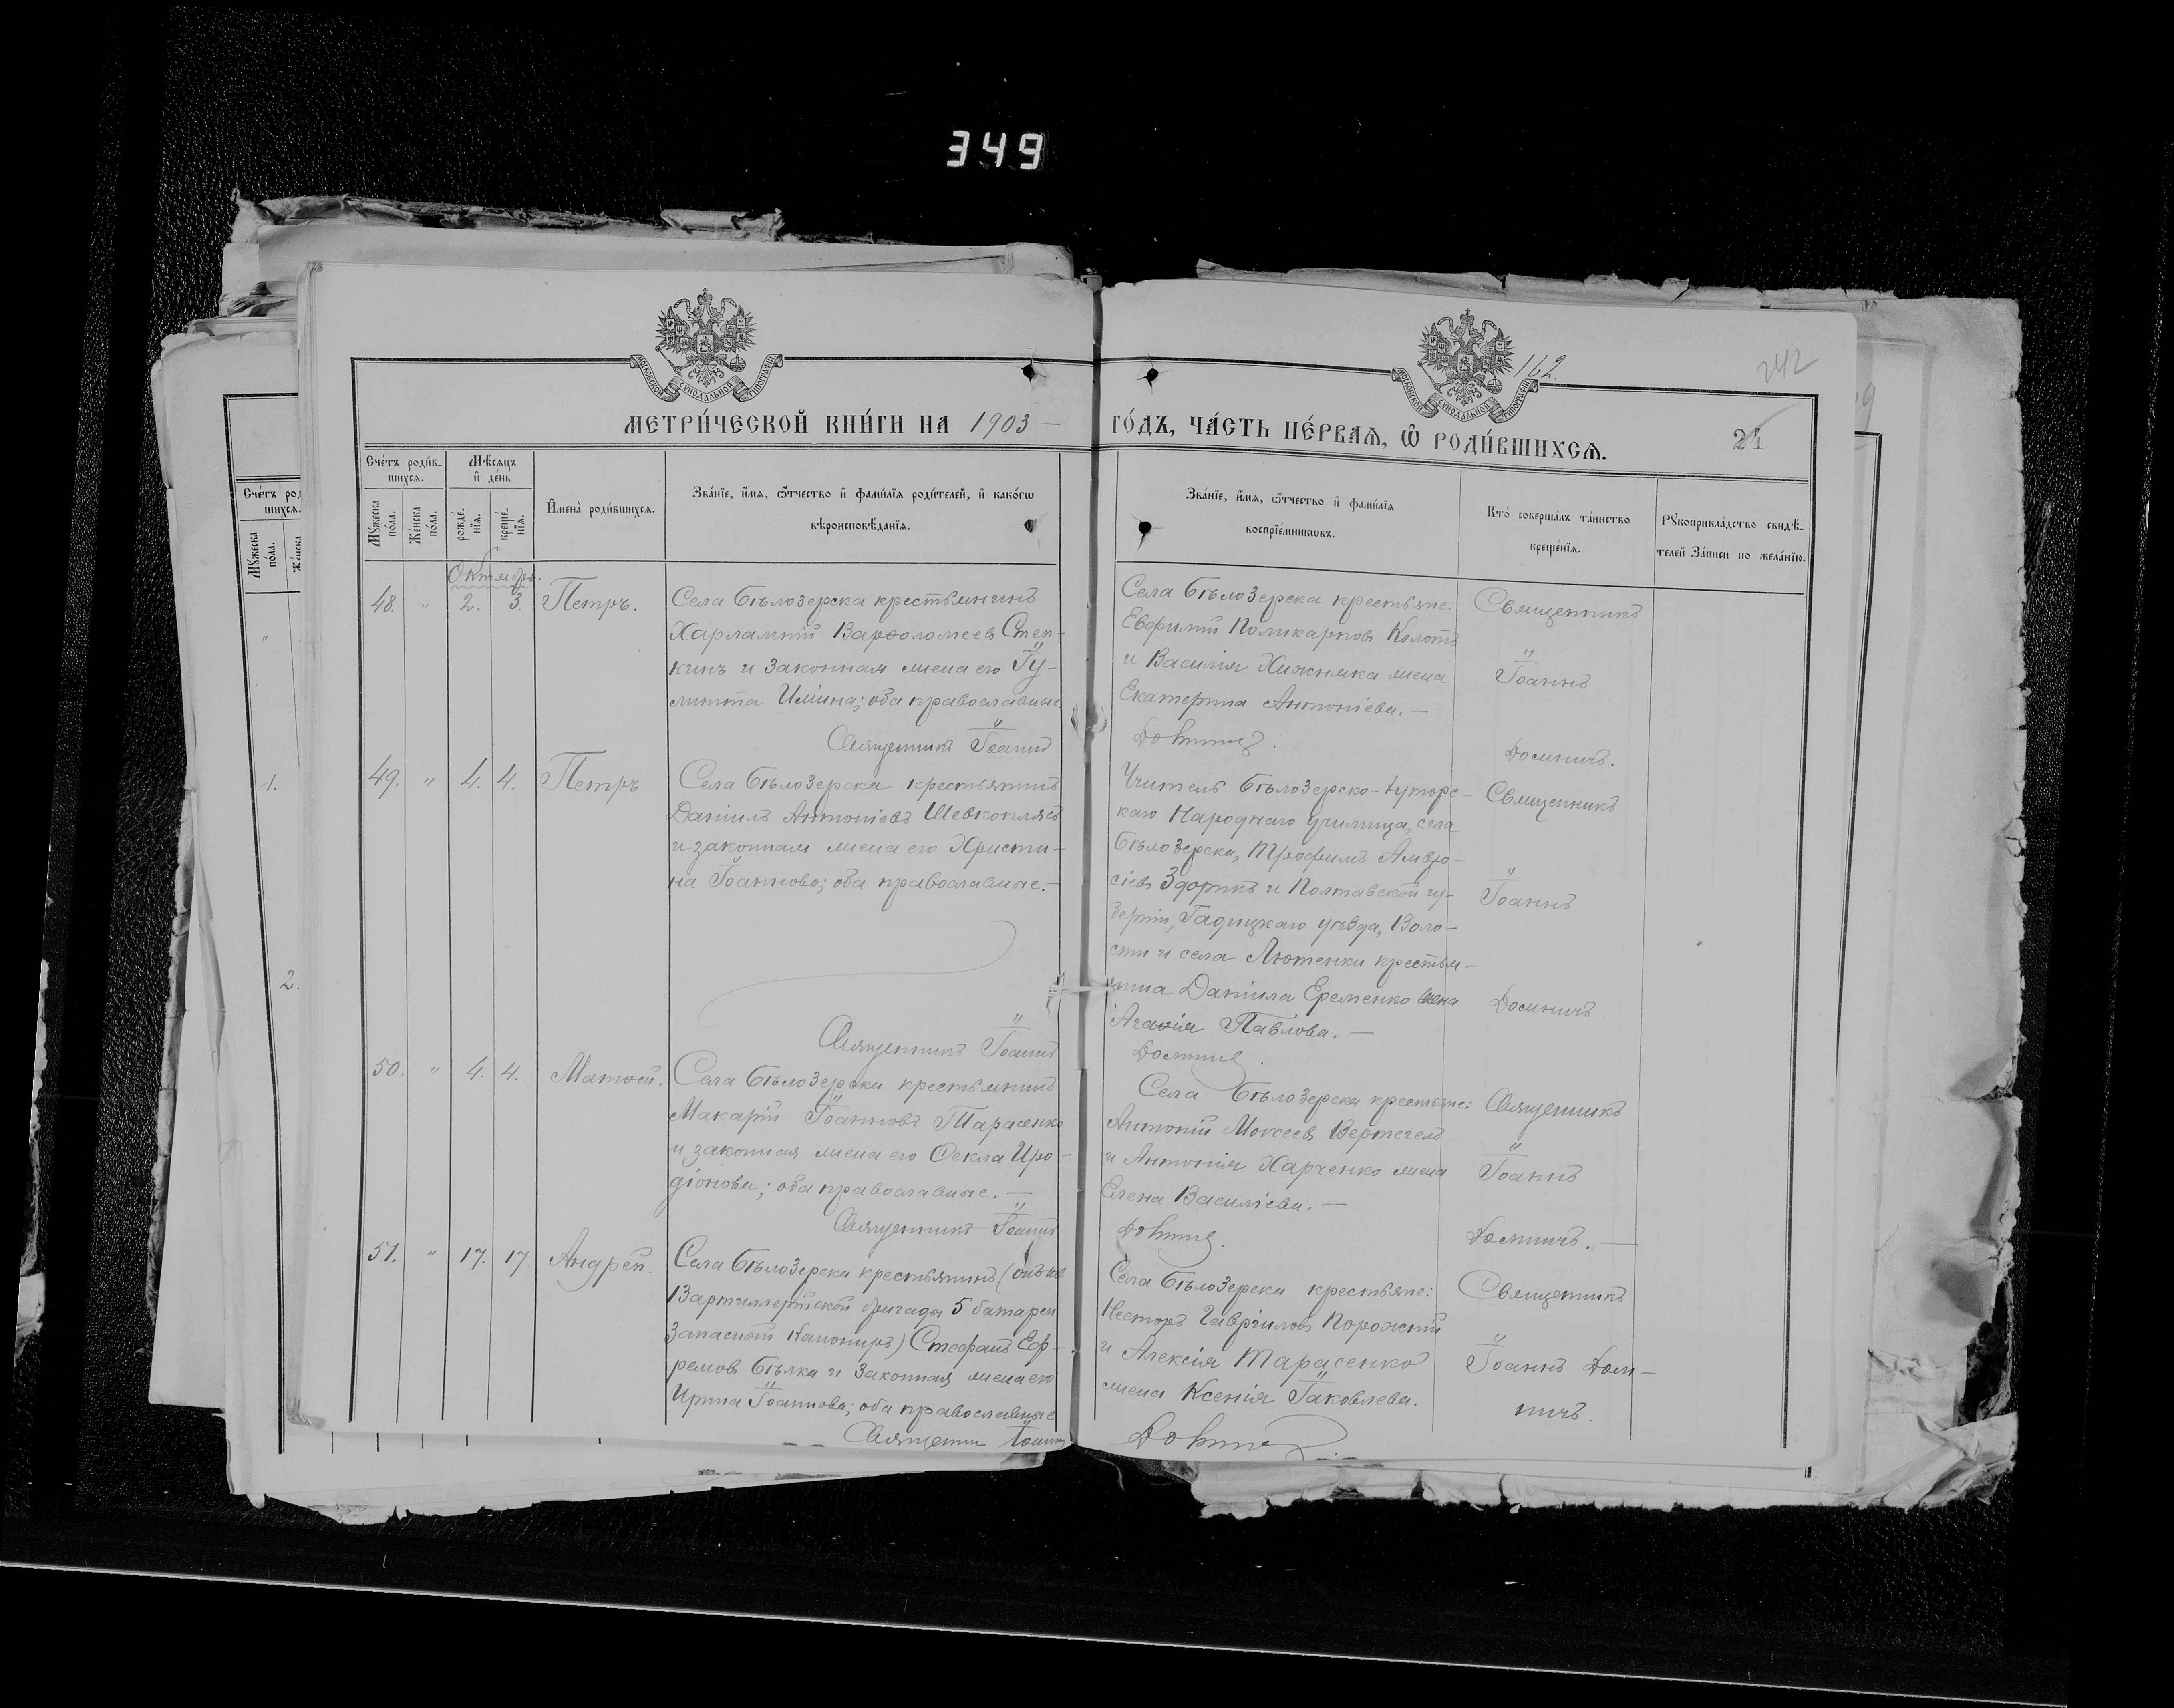 349
162
242
МОСКОВСКОЙ СУНОДАЛЬНОЙ ТИПОГРАФІИ
МОСКОВСКОЙ СУНОДАЛЬНОЙ ТИПОГРАФІИ
МЕТРИ́ЧЕСКОЙ КНИ́ГИ НА 1903 — ГО́ДЪ, ЧА́СТЬ ПЕ́РВАѦ, Ѡ҆ РОДИ́ВШИХСѦ.
24
Сче́тъ роди́в-
шихсѧ.
Мѣсѧцъ
и҆ де́нь
Мꙋжеска по́ла.
Же́нска по́ла.
рожде́-
нїѧ.
креще́-
нїѧ.
И҆мена̀ роди́вшихсѧ.
Зва́нїе, и҆́мѧ, ѻ҆́тчество и҆ фами́лїѧ роди́телей, и҆ како́гѡ
вѣроисповѣ́данїѧ.
Зва́нїе, и҆́мѧ, ѻ҆́тчество и҆ фами́лїѧ
воспрїе́мникѡвъ.
Кто̀ соверша́лъ та́инство
креще́нїѧ.
Рꙋкоприкла́дство свидѣ́-
телей За́писи по жела́нїю.
Октябрь.
48. " 2. 3. Петръ.
Села Бѣлозерска крестьянинъ
Харлампій Варѳоломеевъ Степ-
кинъ и законная жена его Іу-
литта Ильина; оба православные
Священникъ Іоаннъ
Села Бѣлозерска крестьяне:
Евфимій Поликарповъ Колотъ
и Василія Хижняка жена
Екатерина Антоніева. —
Доминич.
Священникъ
Іоаннъ
Доминичъ.
49. " 4. 4. Петръ
Села Бѣлозерска крестьянинъ
Даніилъ Антоніевъ Шевкоплясъ
и законная жена его Христи-
на Іоаннова; оба православные.—
Священникъ Іоаннъ
Учитель Бѣлозерско-Хуторс-
каго Народнаго училища, села
Бѣлозерска, Трофимъ Амвро-
сіевъ Здорикъ и Полтавской гу-
берніи, Гадяцкаго уѣзда, Воло-
сти и села Лютенки крестья-
нина Даніила Еременко жена
Агаѳія Павлова. —
Доминич.
Священникъ
Іоаннъ
Доминичъ.
50. " 4. 4. Матѳей.
Села Бѣлозерска крестьянинъ
Макарій Іоанновъ Тарасенко
и законная жена его Ѳекла Иро-
діонова; оба православные. —
Священникъ Іоаннъ
Села Бѣлозерска крестьяне:
Антоній Моисеевъ Вертегелъ
и Антонія Харченко жена
Елена Василіева. —
Доминич.
Священникъ
Іоаннъ
Доминичъ. —
51. " 17. 17. Андрей.
Села Бѣлозерска крестьянинъ (онъ же
артиллерійской бригады 5 батареи
запасный Канониръ) Стефанъ Еф-
ремовъ Бѣлка и законная жена его
Ирина Іоаннова; оба православные
Священник Іоаннъ
Села Бѣлозерска крестьяне:
Несторъ Гавріиловъ Порожній
и Алексія Тарасенко
жена Ксенія Іаковлева.
Доминич
Священникъ
Іоаннъ Дом-
ничъ.
Сче́тъ род
шихсѧ.
Мꙋжеска
по́ла.
Же́нска
"
1.
2.